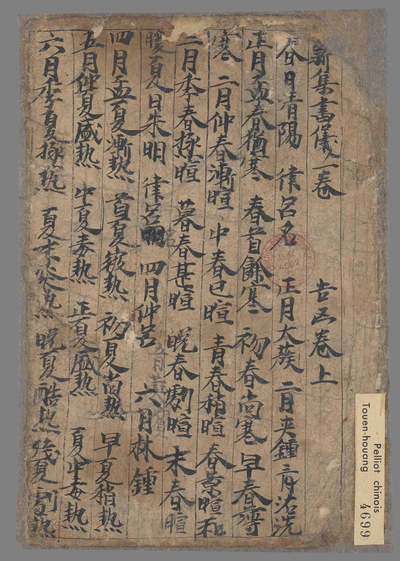 新集書儀一卷 吉凶卷上
春日青陽 律呂名 正月太蔟 二月夾鍾 三月沽洗
正月孟春猶寒 春首餘寒 初春尚寒 早春薄
寒 二月仲春漸暄 中春已暄 青春稍暄 春景暄和
三月季春極暄 暮春甚暄 晚春劇暄 末春暄
暖 夏日朱明 律呂 四月仲呂 六月林鍾
四月孟夏漸熱 首夏微熱 初夏尚熱 早夏稍熱
五月仲夏盛熱 中夏毒熱 正夏盛熱 夏中毒熱
六月季夏極熱 夏末 熱 晚夏酷熱 殘夏劇熱
Pelliot chinois
Touen-houang
4699